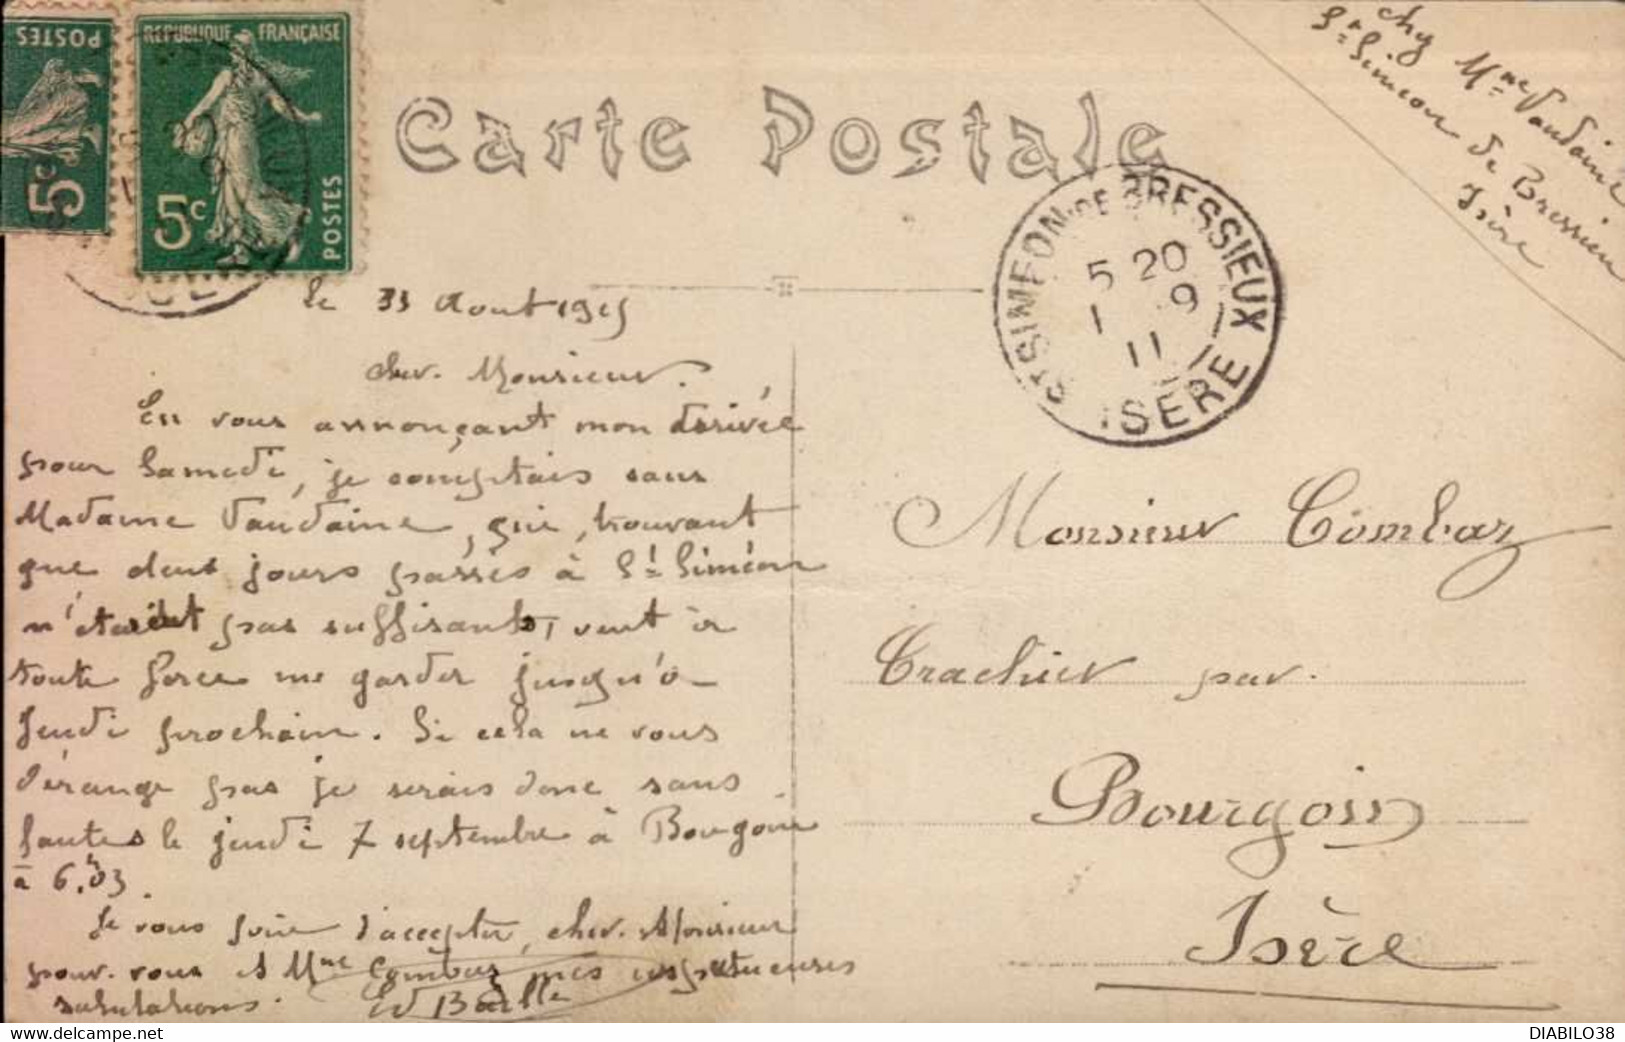 POSTES
5c
RÉPUBLIQUE FRANÇAISE
5c
POSTES
Carte Postale
chez Mme Vaudaine
St Siméon de Bressieu
Isère
ST SIMÉON-DE-BRESSIEUX
5 20
1 9
11
ISÈRE
le 31 Aout
cher Monsieur.
En vous annonçant mon arrivée
pour Samedi, je comptais sans
Madame Vaudaine, qui, trouvant
que deux jours passés à St Siméon
n'étaient pas suffisants, veut à
toute force me garder jusqu'à
Jeudi prochain. Si cela ne vous
dérange pas je serais donc sans
fautes le jeudi 7 septembre à Bourgoin
à 6h03.
Je vous prie d'accepter, cher Monsieur
pour vous et Mme Combaz mes respectueuses
salutations. Ed Baille
Monsieur Combaz
Trachier par
Bourgoin
Isère
DIABILO38